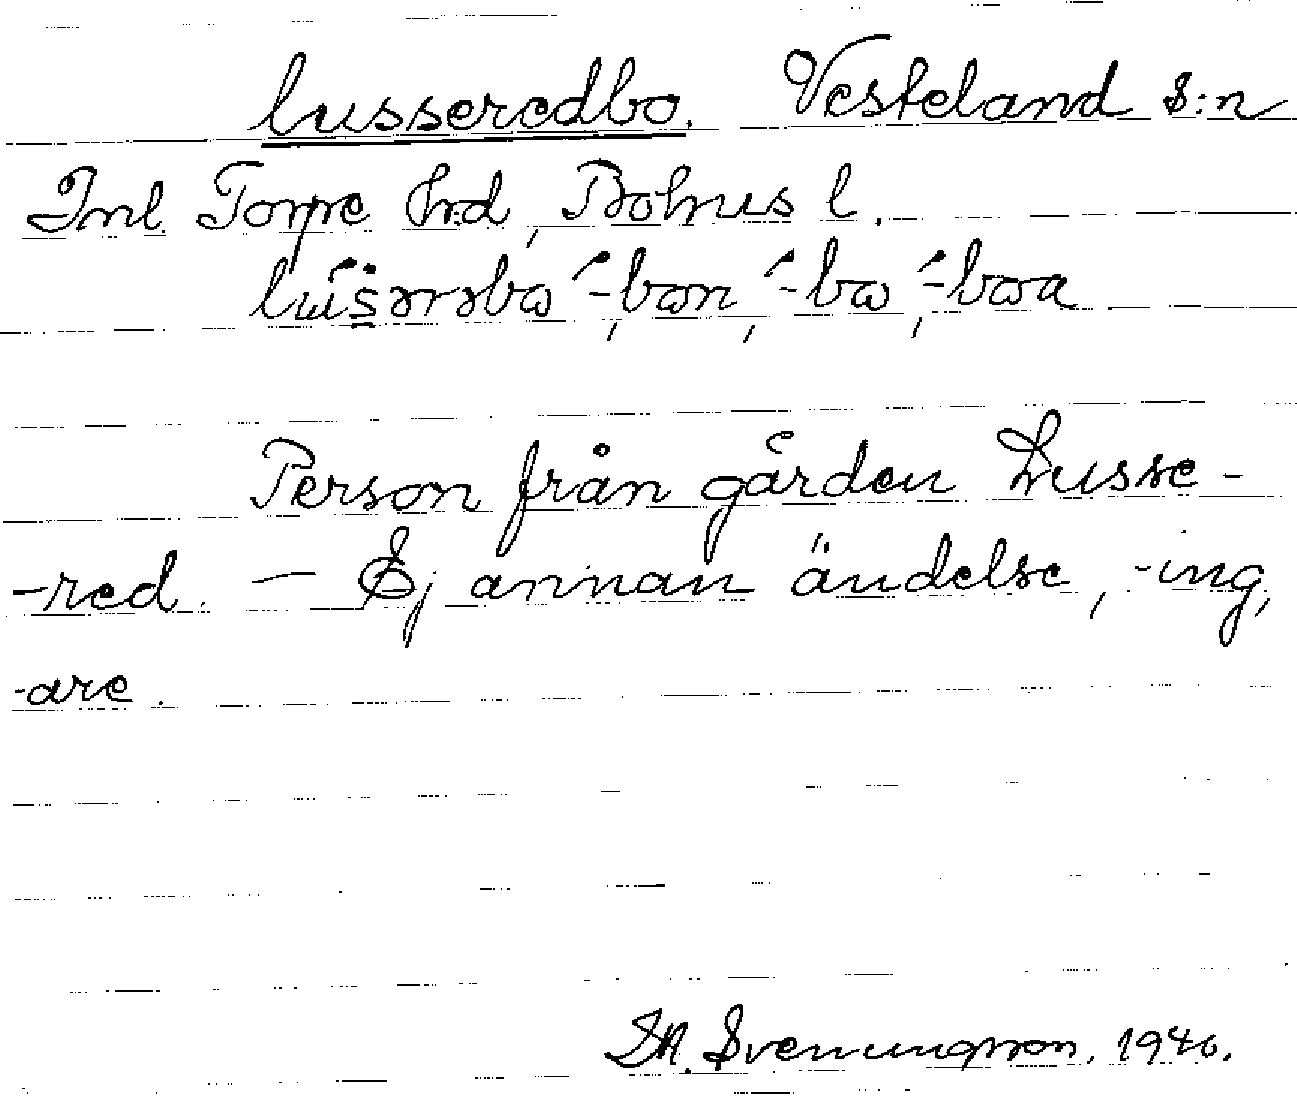 lusseredbo. Vesteland s:n
Inl. Torpe hrd, Bohus l.
Person från gården Lusse-
-red. — Ej annan ändelse, -ing,
-are.
Svenungsson, 1946.